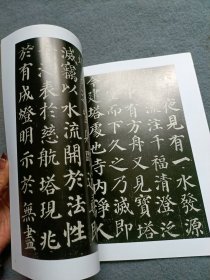 夜見有一水發源
流注千福清澄泛
中有方舟又見寶塔
而下久之乃滅即
建塔處也寺內淨人
滅竊以水流開於法性
表於慈航塔現兆
於有成燈明示於無盡